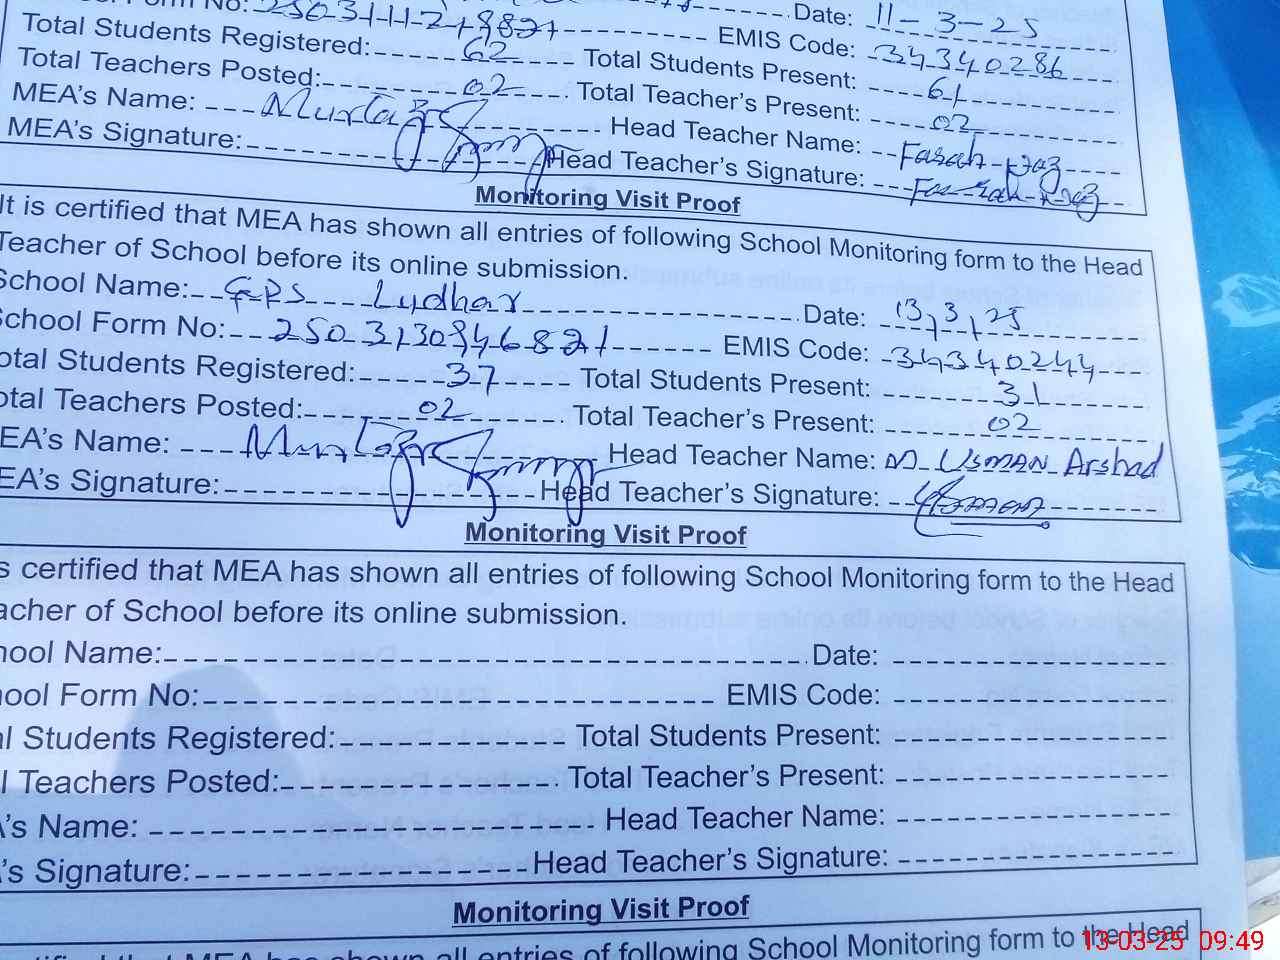 Form No: Date: 11-3-25
Total Students Registered: 62 EMIS Code: 34340286
Total Teachers Posted: 02 Total Students Present: 61
MEA's Name: Murtaza Total Teacher's Present: 02
MEA's Signature: Head Teacher Name: Farah Naz
Head Teacher's Signature: Farah Naz
Monitoring Visit Proof
It is certified that MEA has shown all entries of following School Monitoring form to the Head
Teacher of School before its online submission.
School Name: GPS Ludhar Date: 13,3,25
School Form No: 2503130946821 EMIS Code: 34340244
otal Students Registered: 37 Total Students Present: 31
otal Teachers Posted: 02 Total Teacher's Present: 02
EA's Name: Murtaza Head Teacher Name: M USMAN Arshad
EA's Signature: Head Teacher's Signature: Usman
Monitoring Visit Proof
s certified that MEA has shown all entries of following School Monitoring form to the Head
acher of School before its online submission.
hool Name: Date:
hool Form No: EMIS Code:
al Students Registered: Total Students Present:
l Teachers Posted: Total Teacher's Present:
A's Name: Head Teacher Name:
's Signature: Head Teacher's Signature:
Monitoring Visit Proof
MEA has shown all entries of following School Monitoring form to the Head
13-03-25 09:49